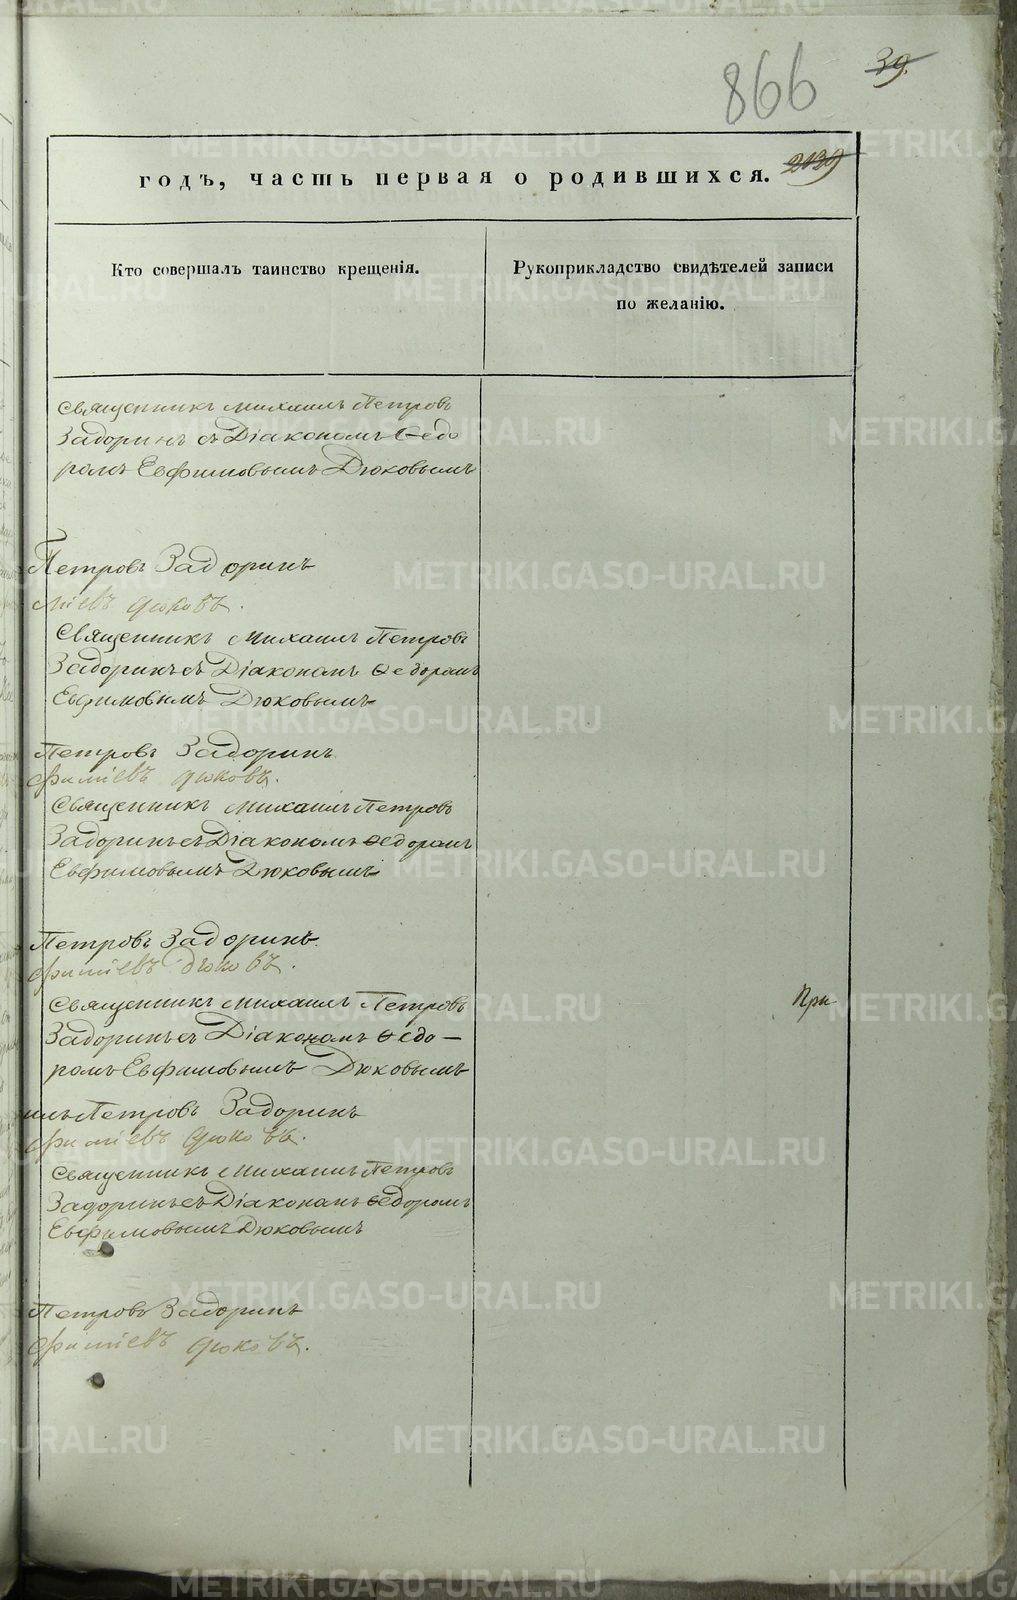 866
39.
2139
годъ, часть первая о родившихся.
Кто совершалъ таинство крещенія.
Рукоприкладство свидѣтелей записи
по желанію.
Священникъ Михаилъ Петровъ
Задоринъ съ Діакономъ Ѳедо
ромъ Евфимовымъ Дюковымъ
Петровъ Задоринъ
міевъ Дюковъ.
Священникъ Михаилъ Петровъ
Задоринъ съ Діакономъ Ѳедоромъ
Евфимовымъ Дюковымъ
Петровъ Задоринъ
фиміевъ Дюковъ.
Священникъ Михаилъ Петровъ
Задоринъ съ Діакономъ Ѳедоромъ
Евфимовымъ Дюковымъ
Петровъ Задоринъ
фиміевъ Дюковъ.
Священникъ Михаилъ Петровъ
При
Задоринъ съ Діакономъ Ѳедо—
ромъ Евфимовымъ Дюковымъ
илъ Петровъ Задоринъ
фиміевъ Дюковъ.
Священникъ Михаилъ Петровъ
Задоринъ съ Діакономъ Ѳедоромъ
Евфимовымъ Дюковымъ
Петровъ Задоринъ
фиміевъ Дюковъ.
METRIKI.GASO-URAL.RU